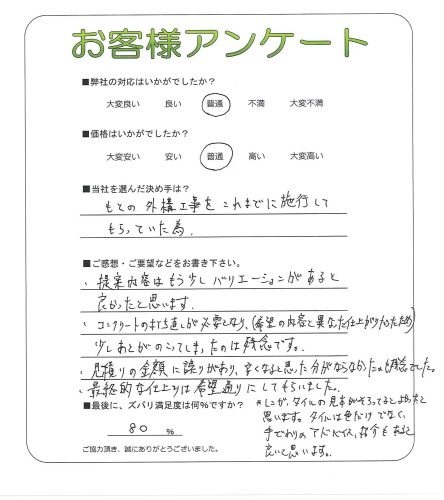 お客様アンケート
■弊社の対応はいかがでしたか?
大変良い 良い 普通 不満 大変不満
■価格はいかがでしたか?
大変安い 安い 普通 高い 大変高い
■当社を選んだ決め手は?
もとの 外構工事を これまでに施行して
もらっていた為.
■ご感想・ご要望などをお書き下さい。
・提案内容はもう少し バリエーションがあると
良かったと思います.
・コンクリートの打ち直しが必要となり、(希望の内容と異なった仕上がりだったため)
少しあとがのこってしまったのは残念です。
・見積りの金額に誤りがあり、安くなると思った分がならなかったのも残念でした。
・最終的な仕上りは希望通りにしてもらいました。
■最後に、ズバリ満足度は何%ですか?
80 %
*レンガ、タイルの見本がそろってると よかったと
思います。タイルは色だけ でなく、
手ざわりの アドバイス、紹介も あると
良いと思います。
ご協力頂き、誠にありがとうございました。